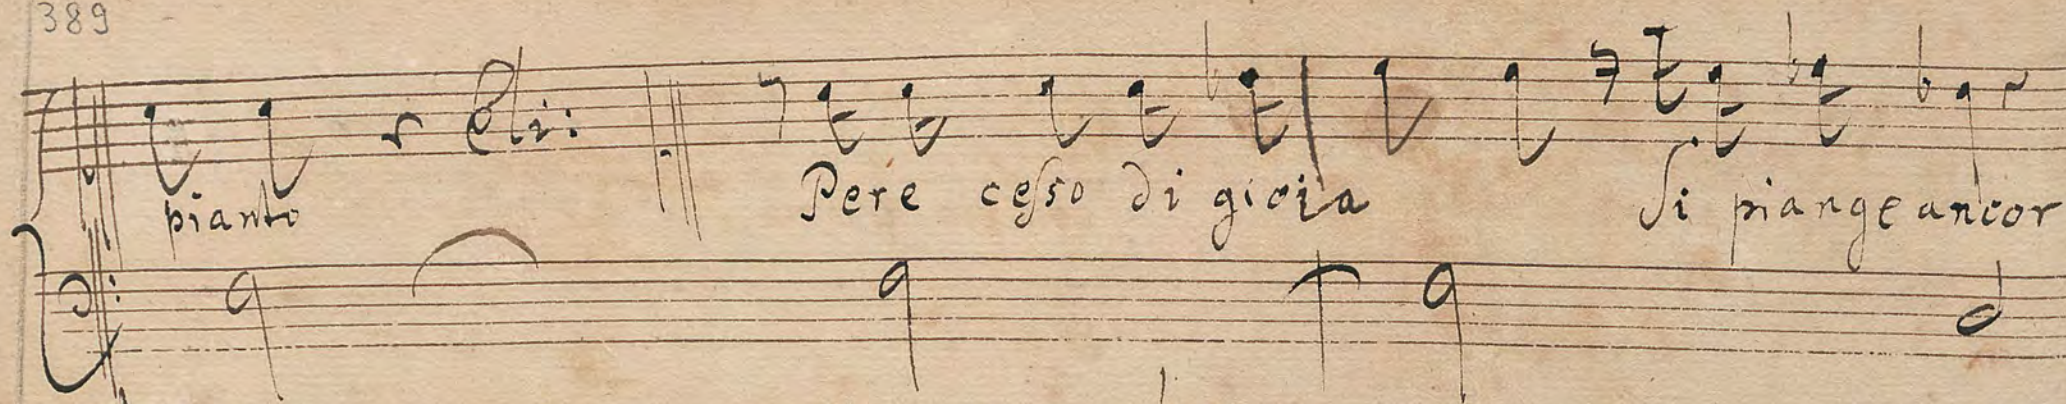 389
Cli:
pianto Pere ceſso di gioia Si piange ancor